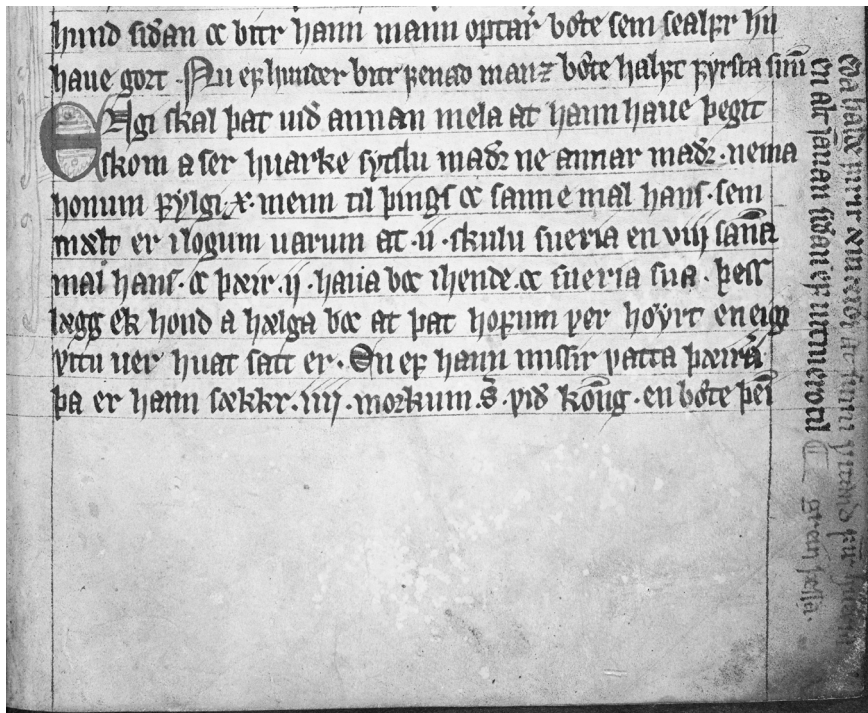 hund siðan ⁊ bitr hann mann optar bøte sem sealfr hn
haue gort . Nu ef hunder bitr fenað manz bøte halft fyrsta sinn
Engi skal þat uið annan mela at hann haue þegit
skom a ser huarke sytslu maðr ne annar maðr . nema
honum fylgi .x. menn til þings ⁊ sanne mal hans . sem
mælt er ilogum uarum at .ii. skulu sueria en viij sanna
mal hans . ⁊ þæir .ij. haua boc ihende . ⁊ sueria sua . þess
lægg ek hond a hælga boc at þat hofum ver høyrt en eigi
vitu uer huat satt er . Nu ef hann missir vatta þæira
þa er hann sækkr . iiij . morkum . s . við konung . en bøte þei
en alt iamnan siðan ef uerr uerðr til
grein þessa